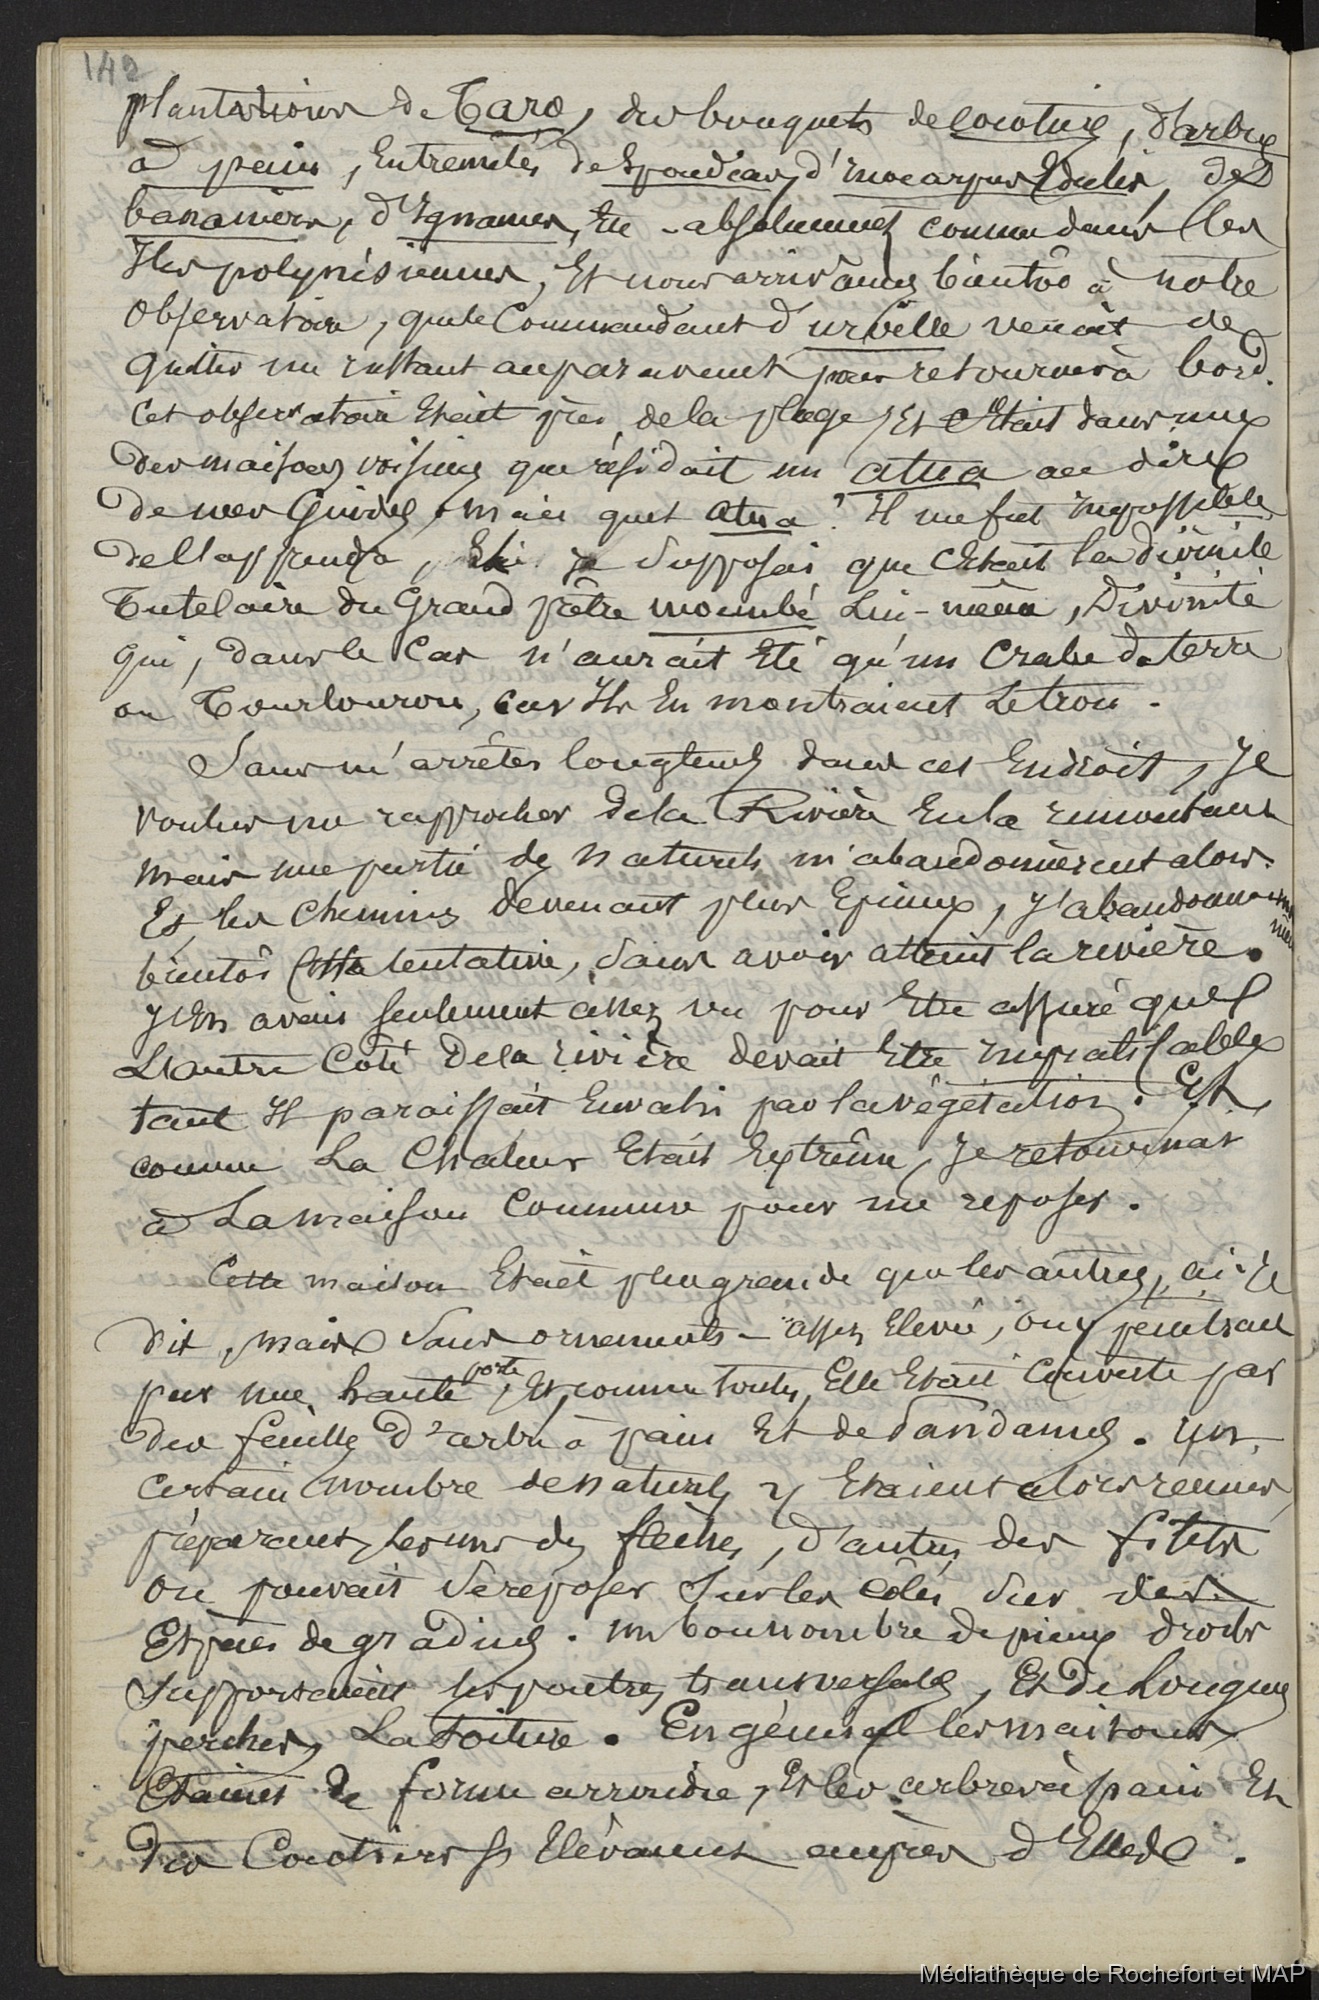 142
plantations de Taro, des bouquets de cocotiers, d'arbres
à pain, Entremêlés de Spondias, d'inocarpus Edulis, de
bananiers, d'Ignames, Etc absolument comme dans les
Iles polynésiennes, Et nous arrivâmes bientôt à notre
Observatoire, que le Commandant d'urville venait de
quitter un instant auparavant pour retourner à bord.
Cet observatoire Etait près de la plage, Et c'Etait dans une
des maisons voisines que résidait un atua au dire
de mes Guides. Mais quel atua? Il me fut Impossible
de l'apprendre, Et je supposai que c'Etait la divinité
Tutelaire du Grand prêtre moembé Lui-même, Divinité
qui, dans le Cas n'aurait Eté qu'un Crabe de terre
ou Tourlourou, car Ils En montraient Le trou.
Sans m'arrêter longtemps dans cet Endroit, Je
voulus me rapprocher de la Rivière En la remontant
mais une partie des naturels m'abandonnèrent alors.
Et les chemins devenant plus Epineux, J'abandonnai moi
même
bientôt cette tentative, sans avoir atteint la rivière.
J'En avais seulement assez vu pour Etre assuré que
L'autre Coté de la rivière devait Etre Impraticable
tant Il paraissait Envahi par la végétation. Et
comme La Chaleur Etait Extrême, Je retournai
à La maison Commune pour me reposer.
Cette maison Etait plus grande que les autres, ai-Je
dit, mais sans ornements - assez Elevée, on y pénétrait
par une haute porte, Et comme toutes, Elle Etait Couverte par
des feuilles d'arbre à pain Et de Pandanus. Un
certain nombre de naturels y Etaient alors réunis,
préparant, les uns des flèches, d'autres des filets
On pouvait se reposer sur les côtés sur des
Espèces de gradins. un bon nombre de pieux droits
supportaient les poutres transversales, Et de Longues
perches La toiture. En général les maisons
Etaient de forme arrondie, Et les arbres à pain Et
des Cocotiers s'Elèvaient auprès d'Elles.
Médiathèque de Rochefort et MAP